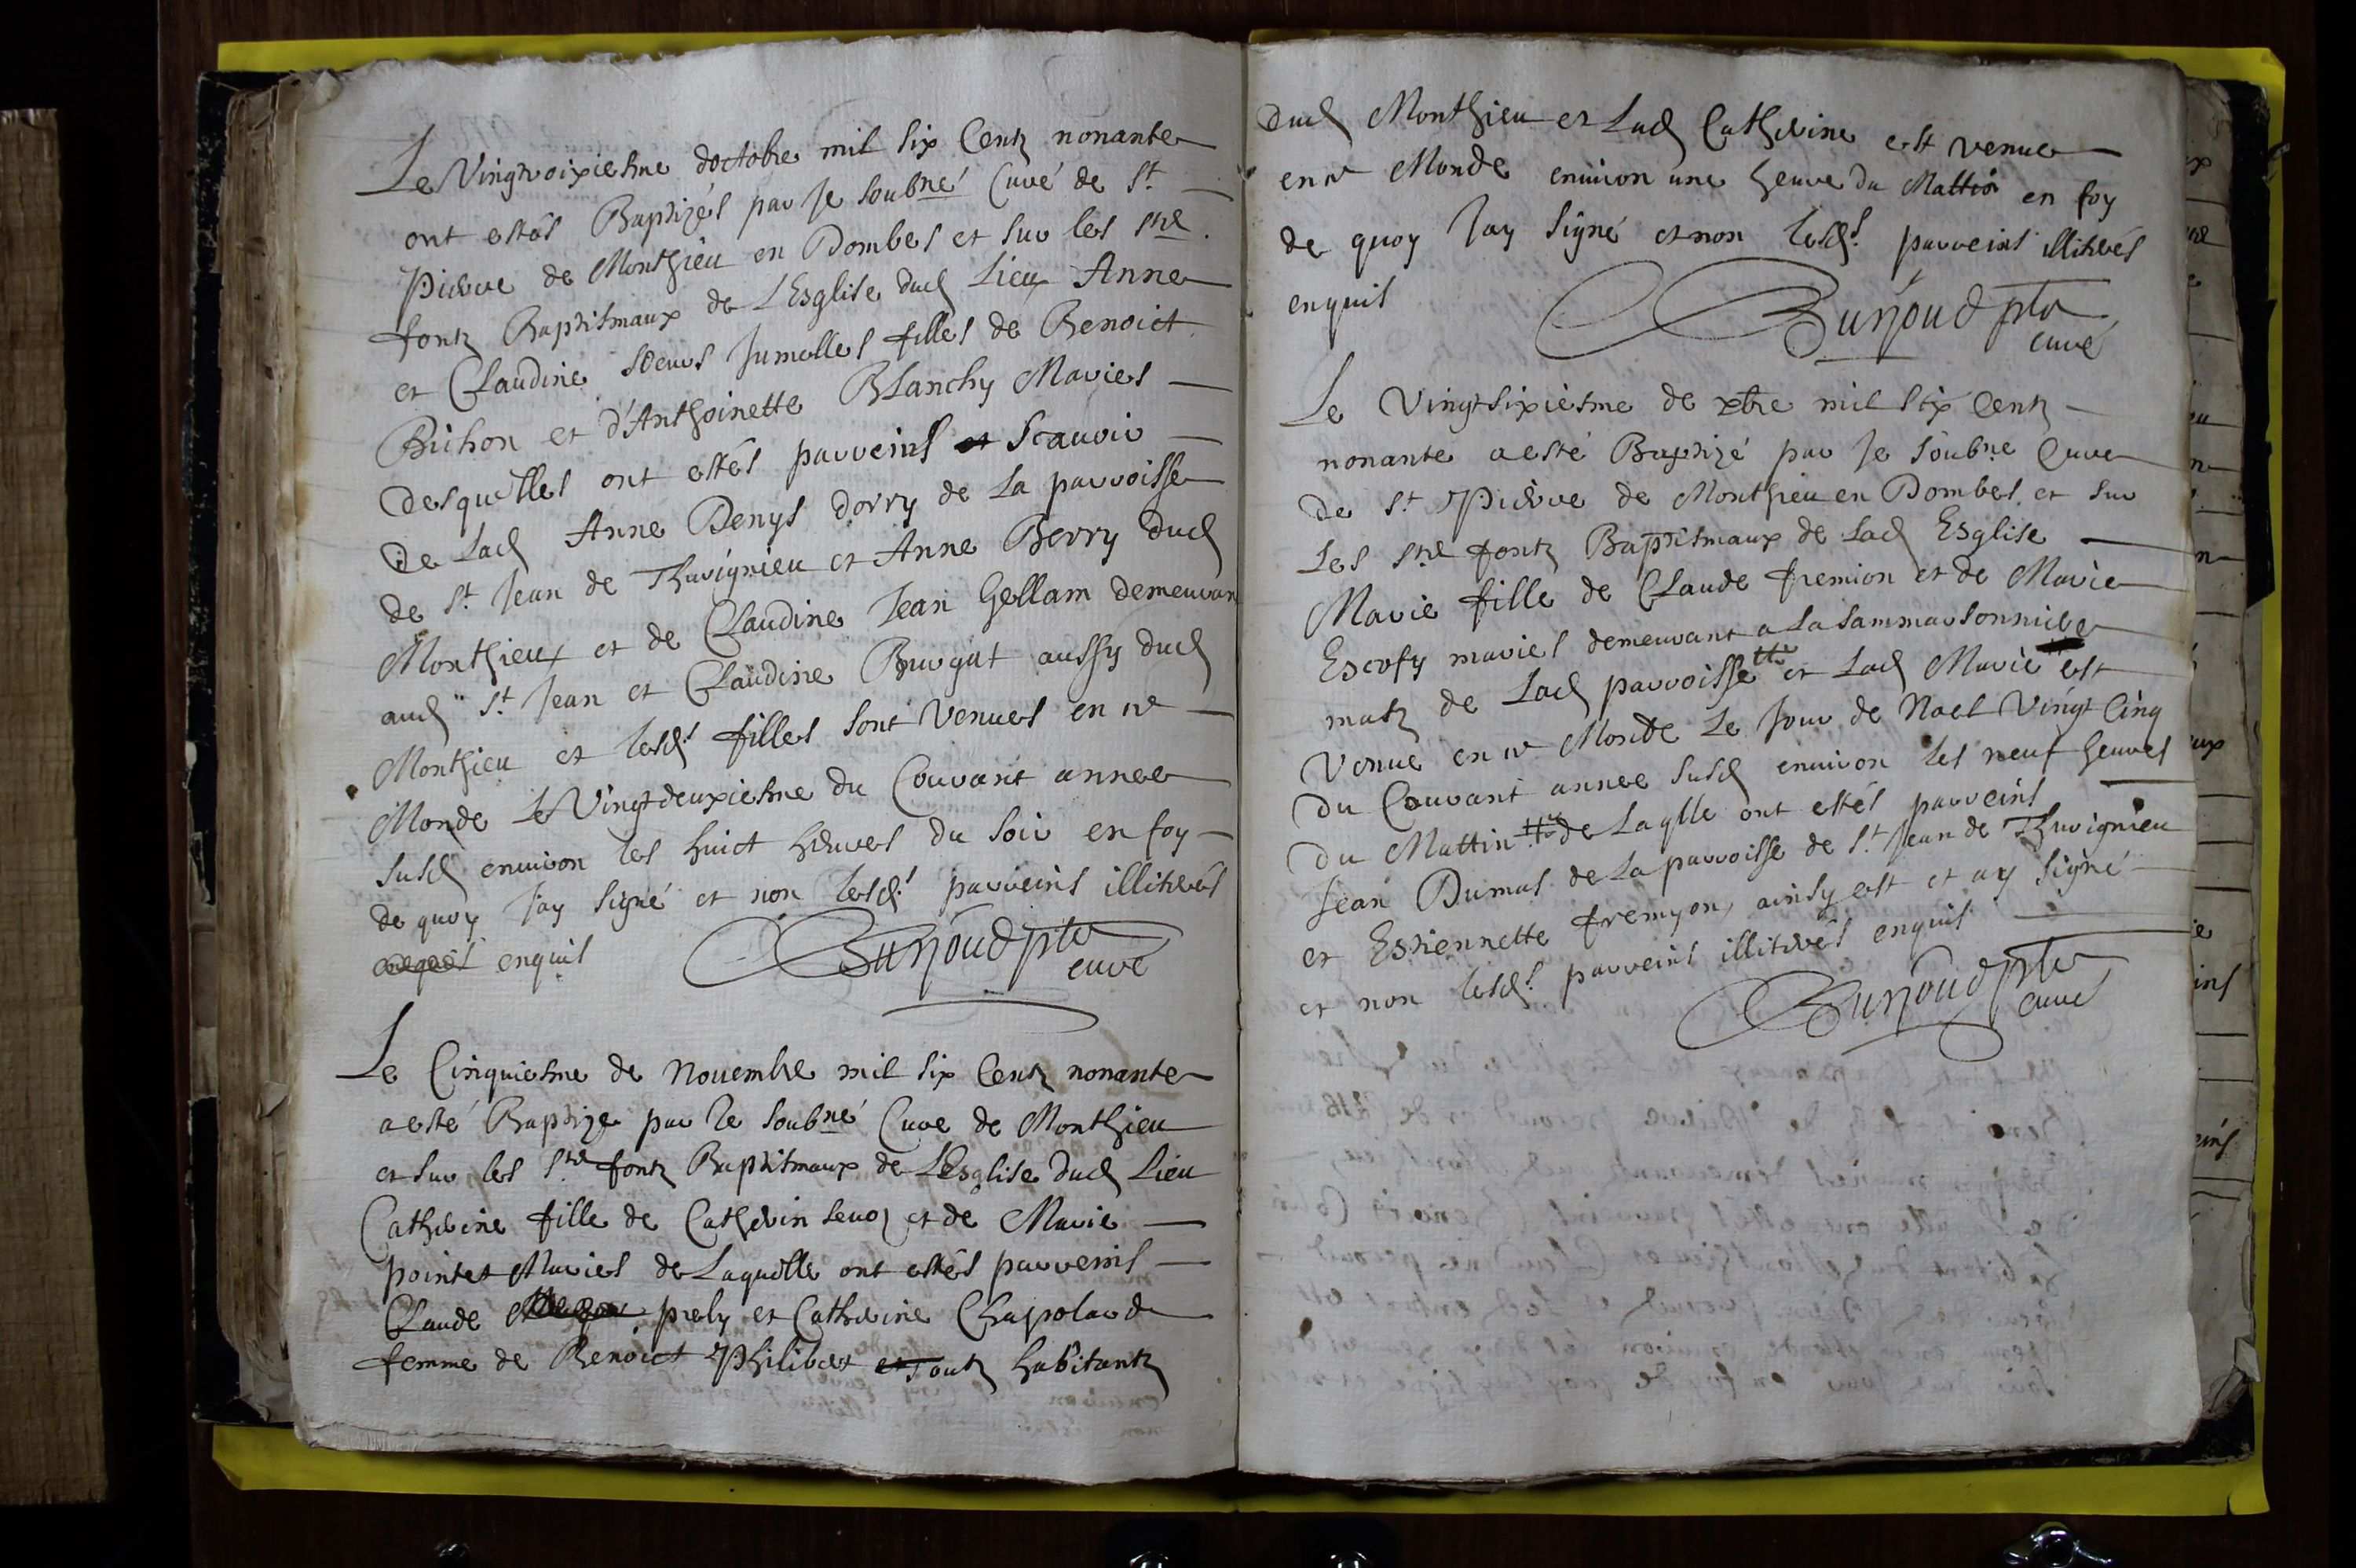 Le Vingtroixiesme doctobre mil six Centz nonante
ont estés Baptizés par Je soubné Curé de St
Pierre de Monthieu en Dombes et sur les stes
fontz Baptismaux de L'Esglise dud Lieu Anne
et Claudine soeurs Jumelles filles de Benoict
Bichon et d'Anthoinette Blanchy Maries
desquelles ont estés parreins et scauoir
de Lad Anne Denys dorry de La parroisse
de St Jean de Thurignieu et Anne Berry dud
Monthieux et de Claudine Jean Gellam demeuran
aud St Jean et Claudine aussy dud
Monthieu et lesds filles sont Venues en ce
Monde le Vingtdeuxiesme du Courant annee
susd enuiron les huict heures du soir en foy
de quoy Jay signé et non lesds parreins illiterés
enquis Burjoud ptre
curé
Le Cinquiesme de Nouembre mil six Centz nonante
a esté Baptize par Je soubné Cure de Monthieu
et sur les stes fontz Baptismaux de L'Esglise dud Lieu
Catherine fille de Catherin et de Marie
pointet Maries de Laquelle ont estés parreins
Claude prely et Catherine Chapolard
femme de Benoict Philibert et Toutz habitantz
dud Monthieu et Lad Catherine est venue
en ce Monde enuiron une heure du Mattin en foy
de quoy Jay signé et non lesds parreins illiterés
enquis Burjoud ptre
curé
Le Vingtsixiesme de xbre mil six Centz
nonante a esté Baptizé par Je soubne Cure
de St Pierre de Monthieu en Dombes et sur
Les stes fontz Baptismaux de Lad Esglise
Marie fille de Claude fremion et de Marie
Escofy maries demeurant a La
de Lad parroisse et Lad Marie est
Venue en ce Monde Le Jour de Noel Vingt Cinq
du Courant annee susd enuiron les neuf heures
du Mattin de Laqlle ont estés parreins
Jean Dumas de La parroisse de St Jean de Thurignieu
et Estiennette fremyon, ainsy est et ay signé
et non lesds parreins illiterés enquis
Burjoud ptre
curé